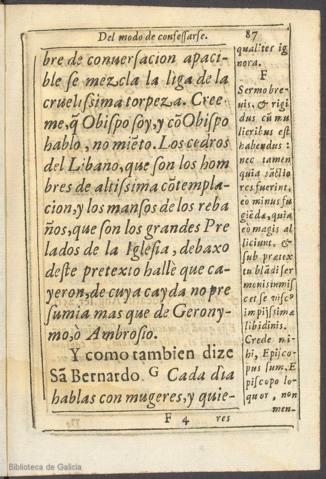 Del modo de confessarse.
87
bre de conuersacion apaci-
ble se mezcla la liga de la
cruelissima torpeza. Cree-
me, q̃ Obispo soy, y cõ Obispo
hablo, no miẽto. Los cedros
del Libano, que son los hom
bres de altissima cõtempla-
cion, y los mansos de los reba
ños, que son los grandes Pre
lados de la Iglesia, debaxo
deste pretexto hallè que ca-
yeron, de cuya cayda no pre
sumia mas que de Gerony-
mo, ò Ambrosio.
Y como tambien dize
Sã Bernardo. G Cada dia
hablas con mugeres, y quie-
F 4
res
qualites ig
nora.
F
Sermo bre-
uis, & rigi
dus cũ mu
lieribus est
habendus:
nec tamen
quia sãctio
res fuerint,
eò minus fu
giẽdæ, quia
eò magis al
liciunt, &
sub prætex
tu blãdi ser
monis immis
cet se visco
impijssimæ
libidinis.
Crede mi-
hi, Episco-
pus sum, E
piscopo lo-
quor, non
men-
Biblioteca de Galicia